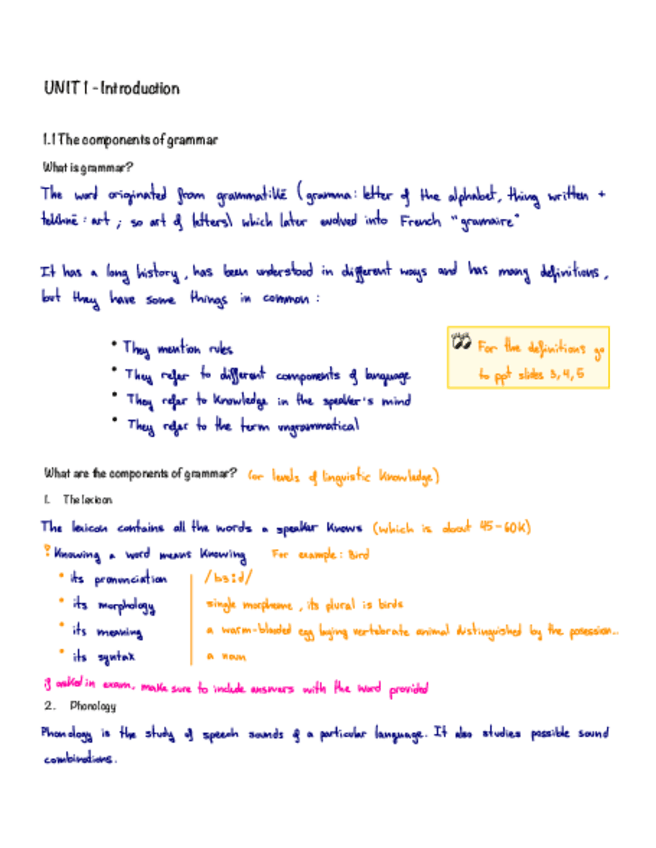 UNIT 1 - Introduction
1.1 The components of grammar
What is grammar?
The word originated from grammatikē (gramma: letter of the alphabet, thing written +
tekhnē: art ; so art of letters) which later evolved into French "gramaire"
It has a long history, has been understood in different ways and has many definitions,
but they have some things in common :
• They mention rules
• They refer to different components of language
• They refer to knowledge in the speaker's mind
• They refer to the term ungrammatical
For the definitions go
to ppt slides 3, 4, 5
What are the components of grammar? (or levels of linguistic knowledge)
1. The lexicon
The lexicon contains all the words a speaker knows (which is about 45-60K)
Knowing a word means knowing For example: Bird
• its pronunciation /bɜːd/
• its morphology single morpheme, its plural is birds
• its meaning a warm-blooded egg laying vertebrate animal distinguished by the posession...
• its syntax a noun
if asked in exam, make sure to include answers with the word provided
2. Phonology
Phonology is the study of speech sounds of a particular language. It also studies possible sound
combinations.